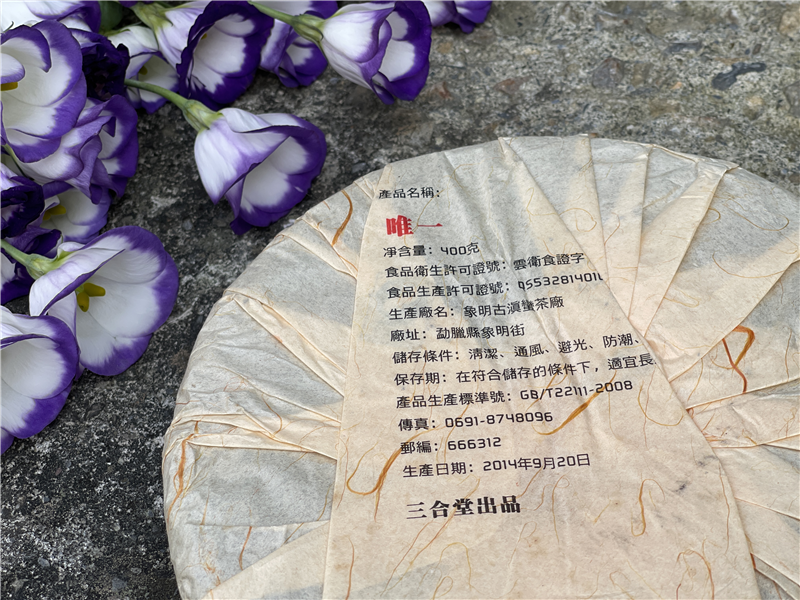 產品名稱：
唯一
凈含量：400克
食品衛生許可證號：雲衛食證字
食品生產許可證號：QS532814011
生產廠名：象明古滇蠻茶廠
廠址：勐臘縣象明街
儲存條件：清潔、通風、避光、防潮、
保存期：在符合儲存的條件下，適宜長
產品生產標準號：GB/T22111-2008
傳真：0691-8748096
郵編：666312
生產日期：2014年9月20日
三合堂出品